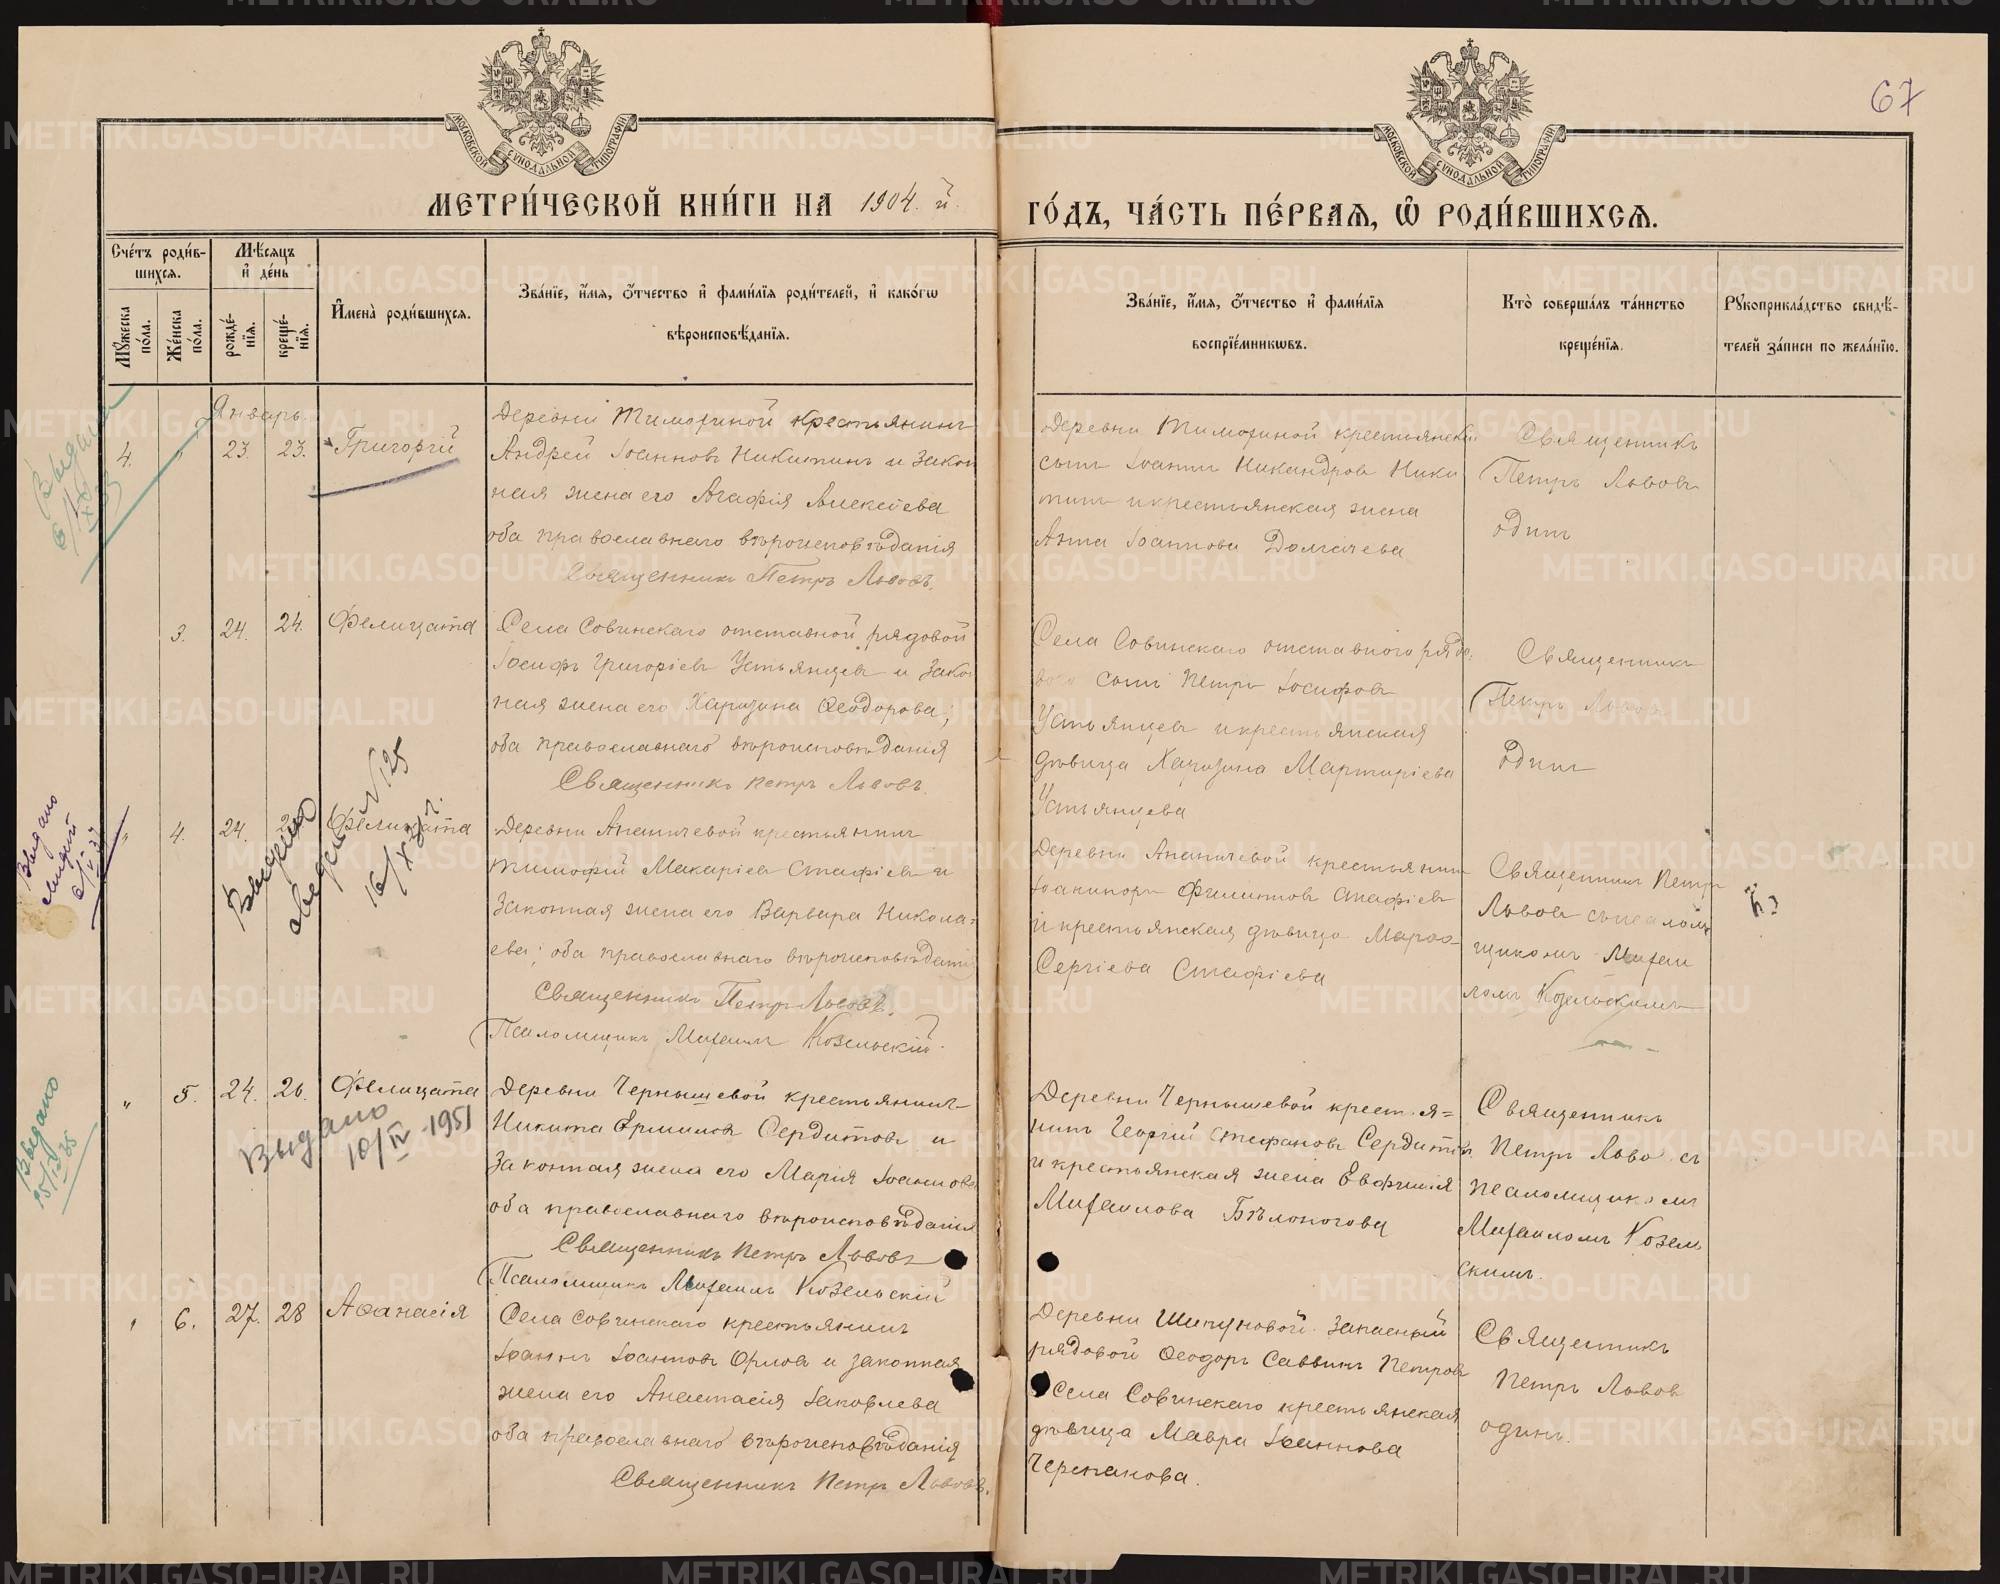 67
МОСКОВСКОЙ СѴНОДАЛЬНОЙ ТИПОГРАФІИ
МОСКОВСКОЙ СѴНОДАЛЬНОЙ ТИПОГРАФІИ
МЕТРИ́ЧЕСКОЙ КНИ́ГИ НА 1904.й
ГО́ДЪ, ЧА́СТЬ ПЕ́РВАѦ, Ѽ РОДИ́ВШИХСѦ.
Сче́тъ роди́в-
шихсѧ.
Мѣ́сѧцъ
и҆ де́нь
Мꙋ́жеска
по́ла.
Же́нска
по́ла.
рожде́-
нїѧ.
креще́-
нїѧ.
И҆мена̀ роди́вшихсѧ.
Зва́нїе, и҆́мѧ, ѻ҆́тчество и҆ фами́лїѧ роди́телей, и҆ како́гѡ
вѣроисповѣ́данїѧ.
Зва́нїе, и҆́мѧ, ѻ҆́тчество и҆ фами́лїѧ
воспрїе́мникѡвъ.
Кто̀ соверша́лъ та́инство
креще́нїѧ.
Рꙋкоприкла́дство свидѣ́-
телей за́писи по жела́нїю.
Январь.
4. " 23. 23. Григорій
Деревни Тимохиной крестьянинъ
Андрей Іоанновъ Никитинъ и закон
ная жена его Агафія Алексѣева
оба православнаго вѣроисповѣданія
Священникъ Петръ Львовъ.
Деревни Тимохиной крестьянскій
сынъ Іоаннъ Никандровъ Ники
тинъ и крестьянская жена
Анна Іоаннова Долгачева
Священникъ
Петръ Львовъ
одинъ
Выдано
3. 24. 24. Фелицата
Села Совинскаго отставной рядовой
Іосифъ Григоріевъ Устьянцевъ и зако
ная жена его Харитина Ѳеодорова;
оба православнаго вѣроисповѣданія
Священникъ Петръ Львовъ.
Села Совинскаго отставного рядо
вого сынъ Петръ Іосифовъ
Устьянцевъ и крестьянская
дѣвица Харитина Мартиріева
Устьянцева
Священникъ
Петръ Львовъ
одинъ
" 4. 24. Фелицата
Деревни Ананичевой крестьянинъ
Тимофій Макаріевъ Стафіевъ и
законная жена его Варвара Никола=
ева; оба православнаго вѣроисповѣдані
Священникъ Петръ Львовъ.
Псаломщикъ Михаилъ Козельскій.
Деревни Ананичевой крестьянинъ
Филиповъ Стафіевъ
и крестьянская дѣвица
Сергіева Стафіева
Священникъ Петръ
Львовъ съ псалом
щикомъ Михаи
ломъ Козельскимъ
Выдано
16/X 31 г.
Выдано
" 5. 24. 26. Фелицата
Деревни Чернышевой крестьянинъ
Никита Ермиловъ Сердитовъ и
законная жена его Марія Іоаннова
оба православнаго вѣроисповѣданія
Священникъ Петръ Львовъ
Псаломщикъ Михаилъ Козельскій
Деревни Чернышевой крестья=
нинъ Георгій Стефановъ Сердитовъ
и крестьянская жена Евфимія
Михаилова Бѣлоногова
Священникъ
Петръ Львовъ съ
псаломщикомъ
Михаиломъ Козель
скимъ.
Выдано
10/IV-1951
Выдано
" 6. 27. 28 Аѳанасія
Села Совинскаго крестьянинъ
Іоаннъ Іоанновъ Орловъ и законная
жена его Анастасія Іаковлева
оба православнаго вѣроисповѣданія
Священникъ Петръ Львовъ.
Деревни Шипуновой запасный
рядовой Ѳеодоръ Саввинъ Петровъ
и Села Совинскаго крестьянская
дѣвица Мавра Іоаннова
Черепанова.
Священникъ
Петръ Львовъ
одинъ.
METRIKI.GASO-URAL.RU